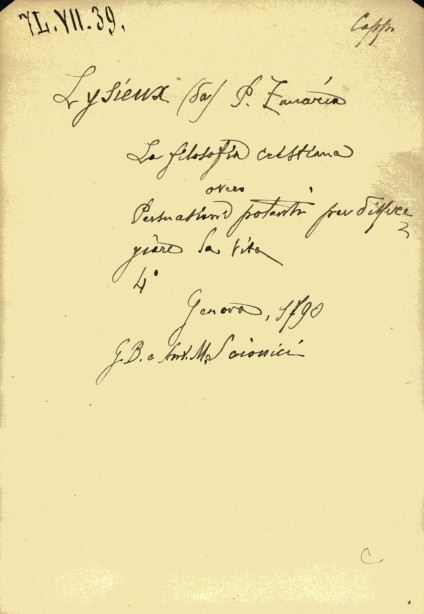 7L.VII.39.
Capp.
Lysieux (da) P. Zaccaria
La filosofia cristiana
overo
Persuationi potenti per disprez
giare la vita
4°
Genova,
G.B. e Ant. M. Scionici
C